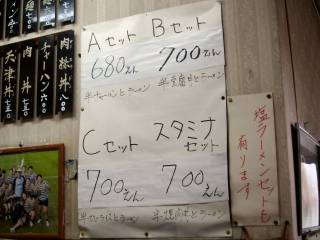 Aセット
680えん
半チャーハンとラーメン
Bセット
700えん
Cセット
700えん
半カレーライスとラーメン
スタミナ
セット
700えん
半焼肉丼とラーメン
塩ラーメンセットも
有ります
チャーハン
肉丼
天津丼